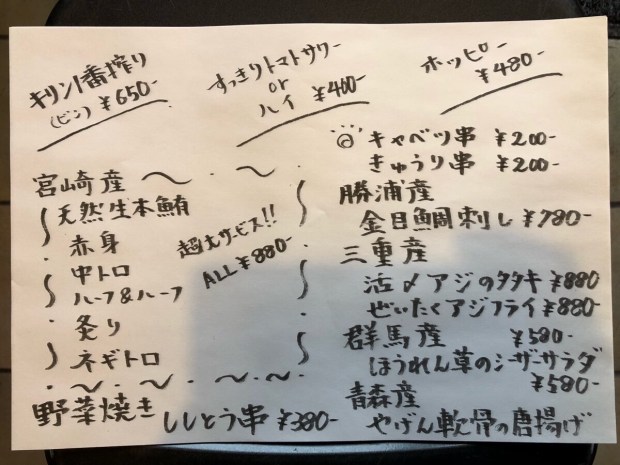 キリン一番搾り
(ビン) ¥650-
すっきりトマトサワー
or
ハイ ¥400-
ホッピー
¥480-
宮崎産
天然生本鮪
赤身
中トロ
ハーフ&ハーフ
炙り
ネギトロ
超大サービス!!
ALL ¥880-
野菜焼き ししとう串 ¥380-
◎ キャベツ串 ¥200-
きゅうり串 ¥200-
勝浦産
金目鯛刺し ¥780-
三重産
活〆アジのタタキ ¥880
ぜいたくアジフライ ¥880-
群馬産 ¥580-
ほうれん草のシーザーサラダ
青森産 ¥580-
やげん軟骨の唐揚げ